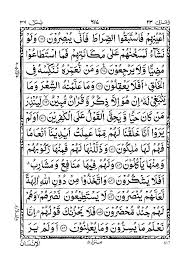 اَعْيُنِهِمْ فَاسْتَبَقُوا الصِّرَاطَ فَاَنّٰى يُبْصِرُوْنَ وَلَوْ
نَشَآءُ لَمَسَخْنٰهُمْ عَلٰى مَكَانَتِهِمْ فَمَا اسْتَطَاعُوْا
مُضِيًّا وَّلَا يَرْجِعُوْنَ وَمَنْ نُّعَمِّرْهُ نُنَكِّسْهُ فِى
الْخَلْقِ اَفَلَا يَعْقِلُوْنَ وَمَا عَلَّمْنٰهُ الشِّعْرَ وَمَا يَنْۢبَغِىْ
لَهٗ اِنْ هُوَ اِلَّا ذِكْرٌ وَّقُرْاٰنٌ مُّبِيْنٌ لِّيُنْذِرَ مَنْ كَانَ
حَيًّا وَّيَحِقَّ الْقَوْلُ عَلَى الْكٰفِرِيْنَ اَوَلَمْ
يَرَوْا اَنَّا خَلَقْنَا لَهُمْ مِّمَّا عَمِلَتْ اَيْدِيْنَآ اَنْعَامًا فَهُمْ
لَهَا مٰلِكُوْنَ وَذَلَّلْنٰهَا لَهُمْ فَمِنْهَا رَكُوْبُهُمْ
وَمِنْهَا يَاْكُلُوْنَ وَلَهُمْ فِيْهَا مَنَافِعُ وَمَشَارِبُ
اَفَلَا يَشْكُرُوْنَ وَاتَّخَذُوْا مِنْ دُوْنِ اللّٰهِ اٰلِهَةً
لَّعَلَّهُمْ يُنْصَرُوْنَ لَا يَسْتَطِيْعُوْنَ نَصْرَهُمْ وَهُمْ
لَهُمْ جُنْدٌ مُّحْضَرُوْنَ فَلَا يَحْزُنْكَ قَوْلُهُمْ اِنَّا
نَعْلَمُ مَا يُسِرُّوْنَ وَمَا يُعْلِنُوْنَ اَوَلَمْ يَرَ
الْاِنْسَانُ